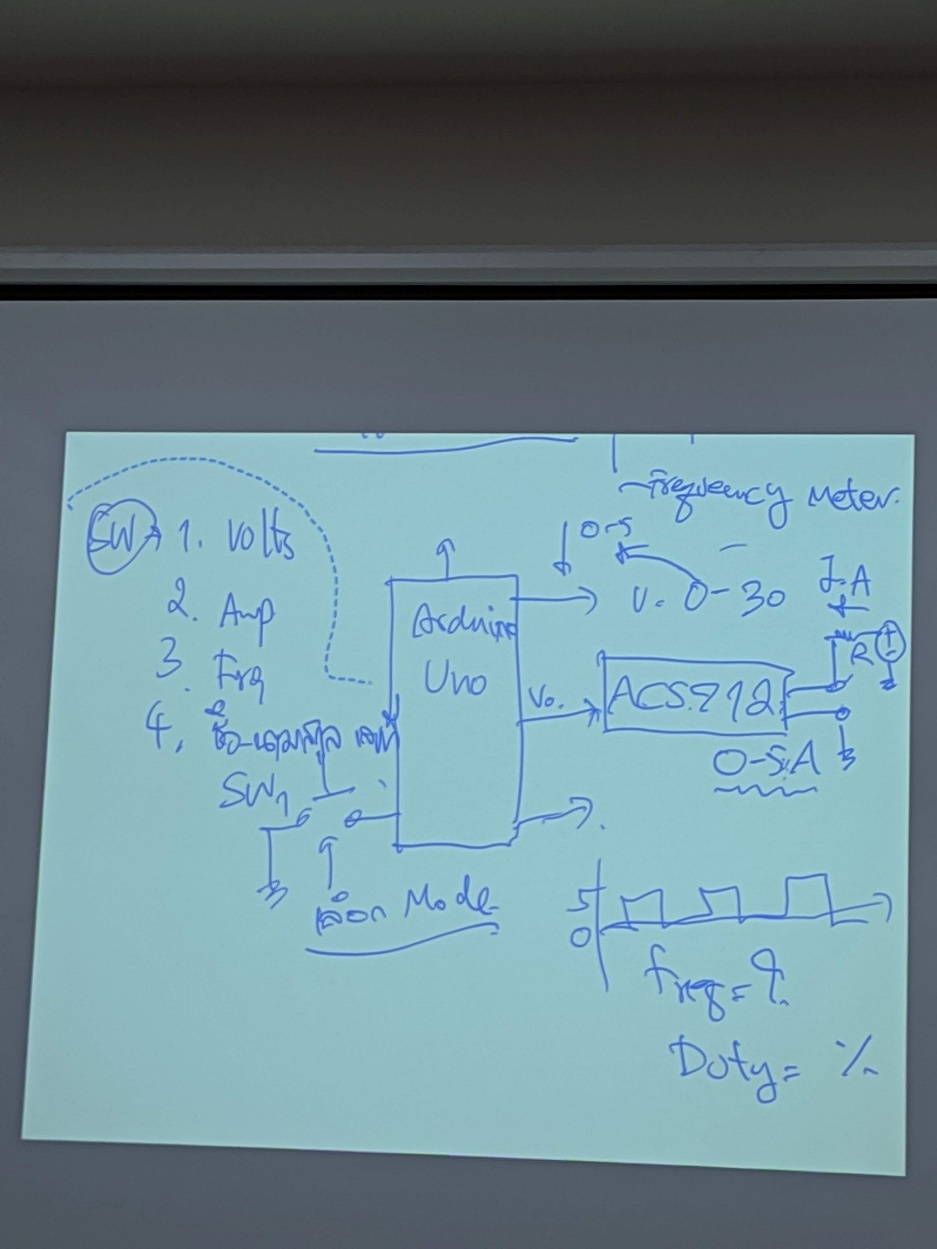 Frequency Meter.
SW → 1. Volts
2. Amp
3. Frq
4. ชื่อ-นามสกุล เลขที่
SW1
เลือก Mode
Arduino
Uno
0-5
V. 0-30
I-A
R
Vo.
ACS712
0-5A
5
0
freq = ?
Duty = %